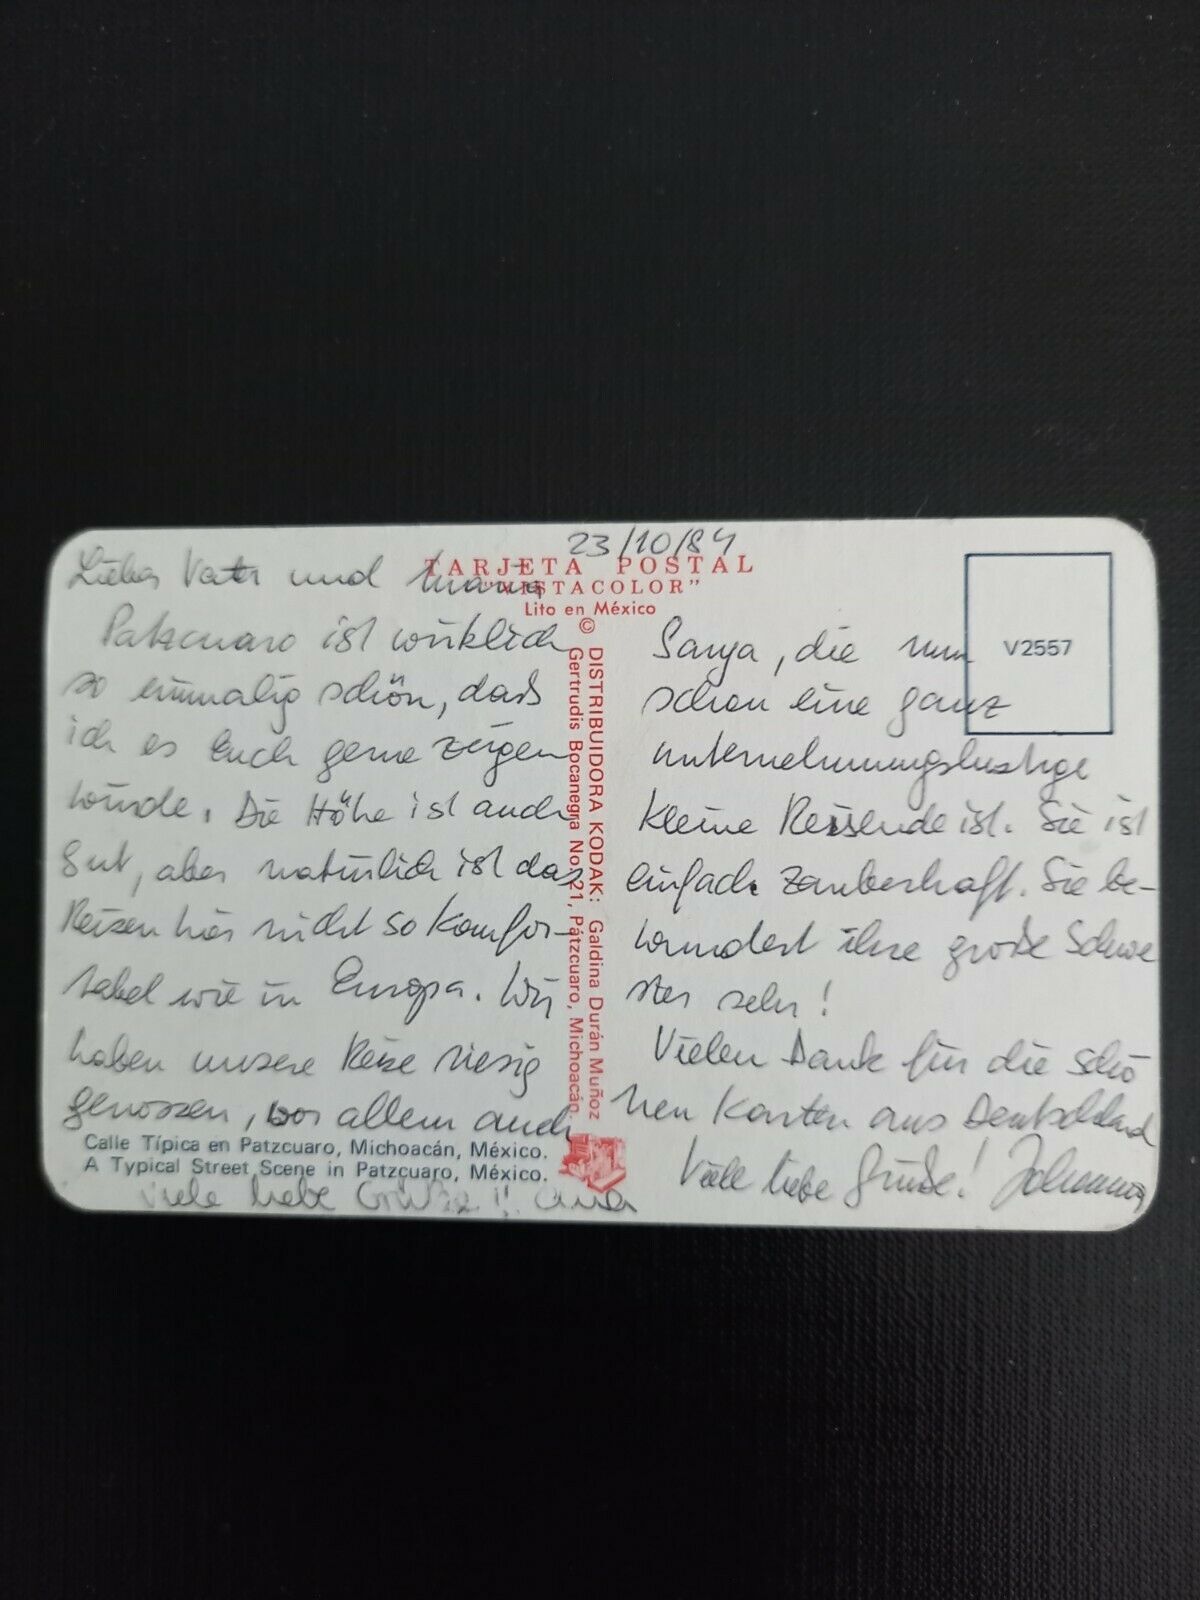 23/10/84
TARJETA POSTAL
"VISTACOLOR"
Lito en México
© DISTRIBUIDORA KODAK: Galdina Durán Muñoz
Gertrudis Bocanegra No. 21, Pátzcuaro, Michoacán.
V2557
Lieber Vater und Mama
Patzcuaro ist wirklich
so einmalig schön, daß
ich es Euch gerne zeigen
würde. Die Höhe ist auch
gut, aber natürlich ist das
Reisen hier nicht so komfor-
tabel wie in Europa. Wir
haben unsere Reise riesig
genossen, vor allem auch
Calle Típica en Patzcuaro, Michoacán, México.
A Typical Street Scene in Patzcuaro, México.
Viele liebe Grüße!!
Sanya, die nun
schon eine ganz
unternehmungslustige
kleine Reisende ist. Sie ist
einfach zauberhaft. Sie be-
wundert ihre große Schwe
ster sehr!
Vielen Dank für die schö
nen Karten aus Deutschland
Viele liebe Grüße! Johanna